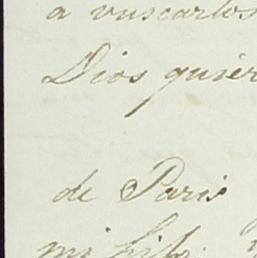 a vuscarlos
Dios quier
de Paris
mi hijo